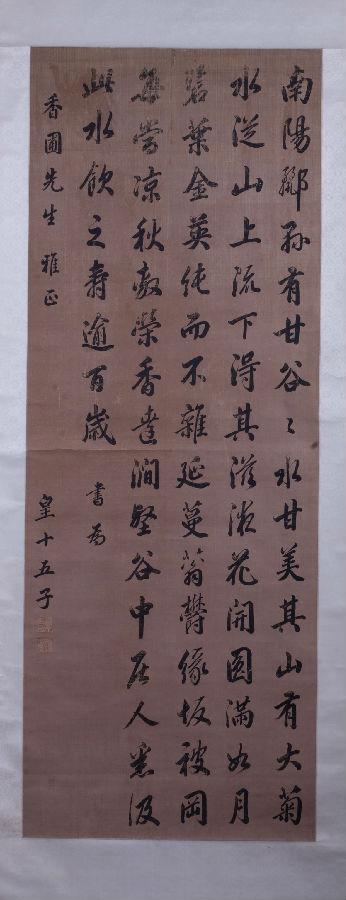 南陽酈縣有甘谷〻水甘美其山有大菊
水從山上流下得其滋液花開圓滿如月
碧葉金英純而不雜延蔓蓊鬱緣坂被岡
當涼秋敷榮香達澗壑谷中居人悉汲
此水飲之壽逾百歲
書為
香圃先生雅正
皇十五子